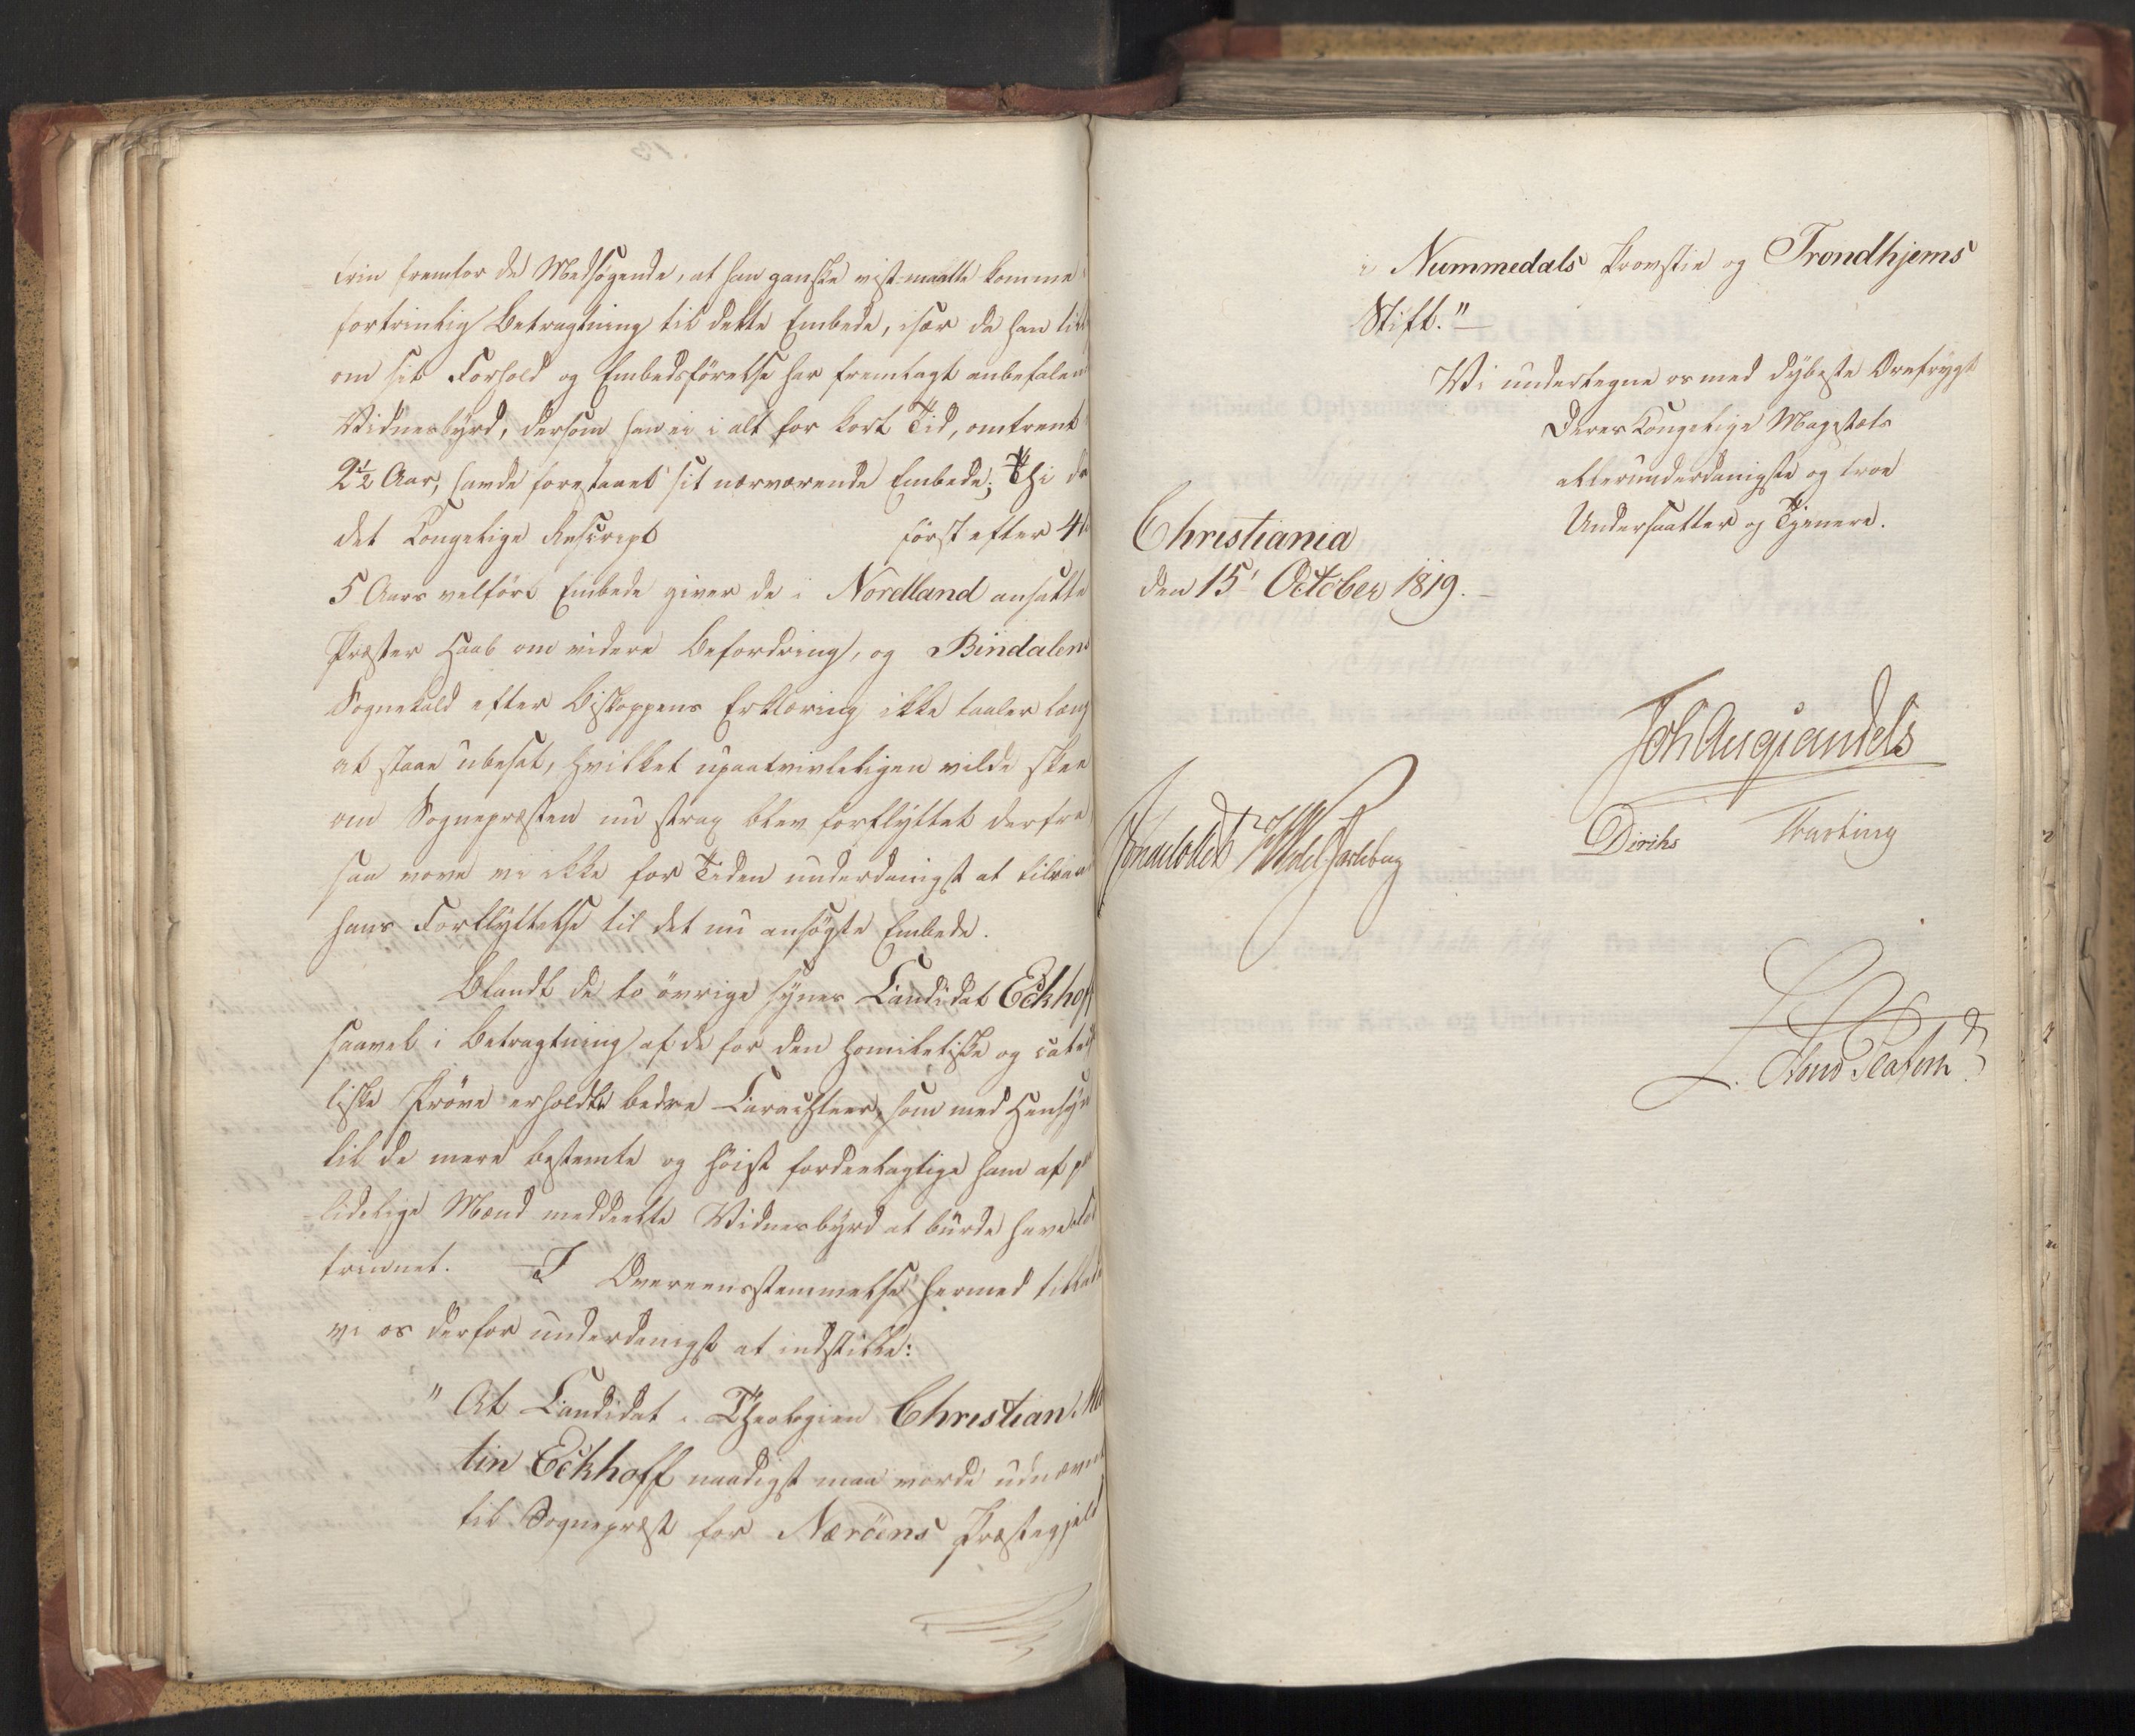 trin fremfor de Medsøgende, at han ganske vist maatte komme i
fortrinlig Betragtning til dette Embede, især da han til
om sit Forhold og Embedsførelse har fremlagt anbefalen
Vidnesbyrd, dersom han ei i alt for kort Tid, omtrent
2½ Aar, havde forestaaet sit nærværende Embede; Thi da
det Kongelige Rescript først efter 4 
5 Aars velført Embede giver de i Nordland ansatte
Præster Haab om videre Befordring, og Bindalens
Sognekald efter Biskoppens Erklæring ikke taaler lang
at staae ubesat, hvilket upaatvivleligen vilde skee
om Sognepræsten nu strax blev forflyttet derfra
saa vove vi ikke for Tiden underdanigst at tilraa
hans Forflyttelse til det nu ansøgte Embede.
Blandt de to øvrige synes Candidat Eckhoff
saavel i Betragtning af de for den homiletiske og catech
tiske Prøve erholdte bedre Carachterer, som med Hensyn
til de mere bestemte og høist fordeelagtige ham af p
lidelige Mænd meddeelte Vidnesbyrd at burde have
trinnet. I Overeensstemmelse hermed tillade
vi os derfor underdanigst at indstille:
" At Candidat i Theologien Christian Ma
tin Eckhoff naadigst maa vorde udnævnt
til Sognepræst for Nærøens Præstegjeld
i Nummedals Provstie og Trondhjems
Stift."
Vi undertegne os med dybeste Ærefrygt
Deres Kongelige Majestæts
allerunderdanigste og troe
Undersaatter og Tjenere.
Christiania
den 15' October 1819.
Joh Aug Sandels
Diriks